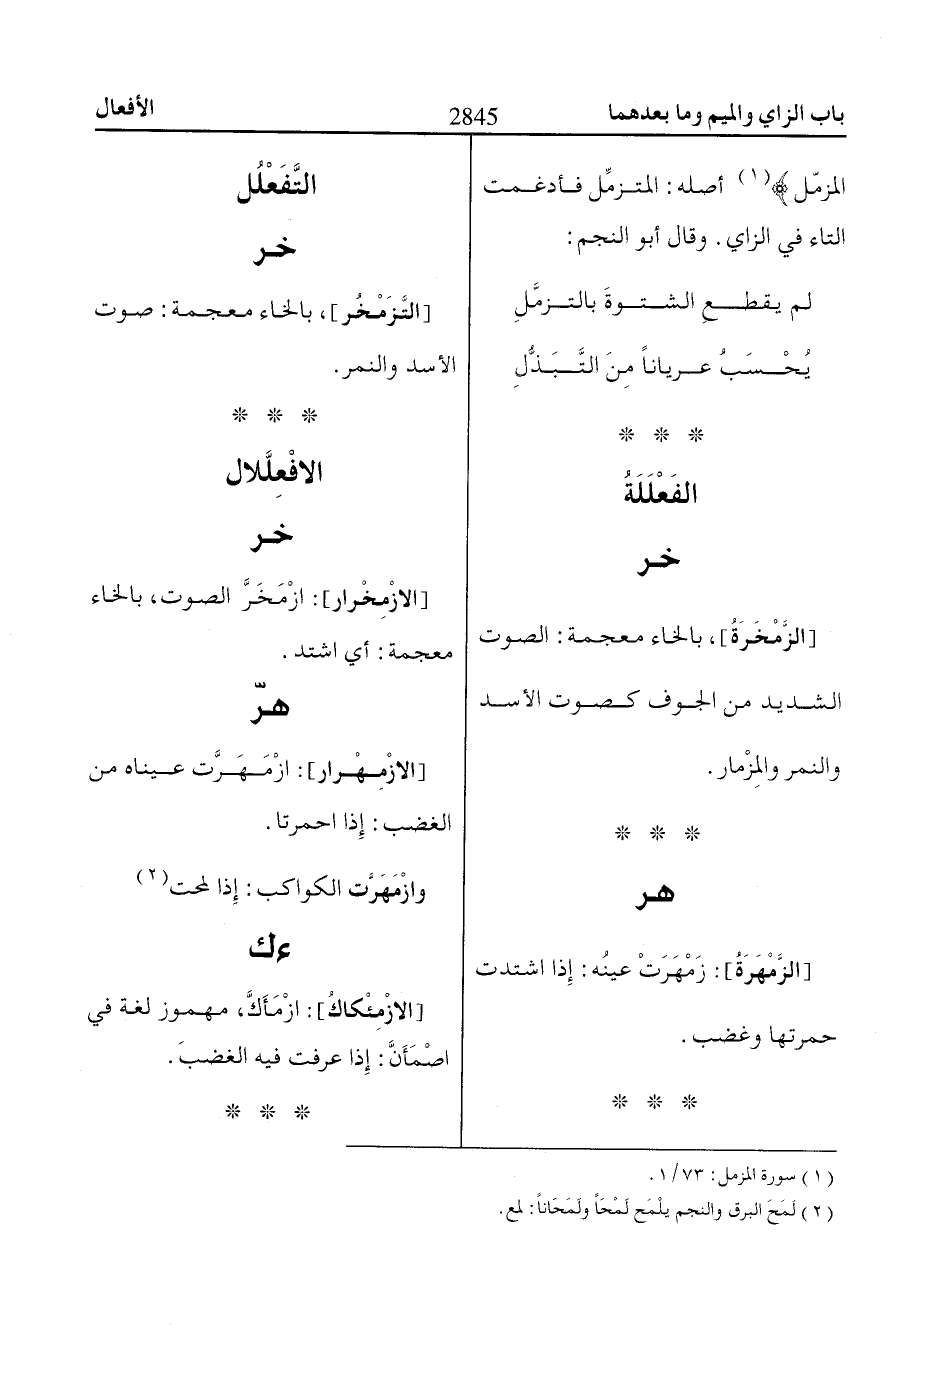 باب الزاي والميم وما بعدهما
2845
الأفعال
المزمّل﴾(١) أصله: المتزمِّل فأدغمت
التاء في الزاي. وقال أبو النجم:
لم يقطعِ الشتوةَ بالتزمَّلِ
يُحْسَبُ عرياناً مِنَ التَّبَذُّلِ
* * *
الفَعْلَلَةُ
خر
[الزَّمْخَرَةُ]، بالخاء معجمة: الصوت
الشديد من الجوف كصوت الأسد
والنمر والمِزْمار.
* * *
هر
[الزَّمْهَرَةُ]: زَمْهَرَتْ عينُه: إِذا اشتدت
حمرتها وغضب.
* * *
التَّفَعْلُل
خر
[التَّزَمْخُر]، بالخاء معجمة: صوت
الأسد والنمر.
* * *
الافْعِلَّلال
خر
[الازْمِخْرار]: ازْمَخَرَّ الصوت، بالخاء
معجمة: أي اشتد.
هرّ
[الازْمِهْرار]: ازْمَهَرَّت عيناه من
الغضب: إِذا احمرتا.
وازْمَهَرَّت الكواكب: إِذا لمحت(٢)
ءك
[الازْمِئْكاكُ]: ازْمَأَكَّ، مهموز لغة في
اصْمَأَنَّ: إِذا عرفت فيه الغضبَ.
* * *
(١) سورة المزمل: ١/٧٣.
(٢) لَمَحَ البرق والنجم يلْمَح لَمْحَاً ولَمَحَاناً: لمع.